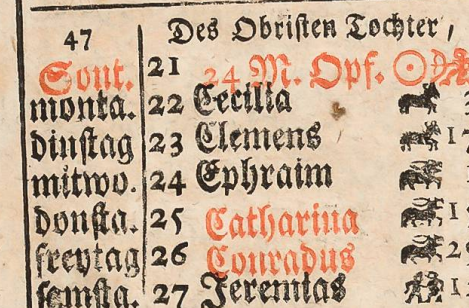 47 Des Obristen Tochter,
Sont. 21 24 M. Opf.
monta. 22 Cecilia
dinstag 23 Clemens 1
mitwo. 24 Ephraim
donsta. 25 Catharina 1
freytag 26 Conradus 2
samsta. 27 Jeremias 1